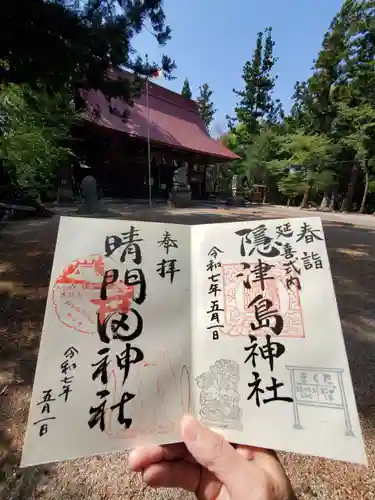 春詣
延喜式内
隠津島神社
令和七年五月一日
奉拝
晴門田神社
令和七年
五月一日